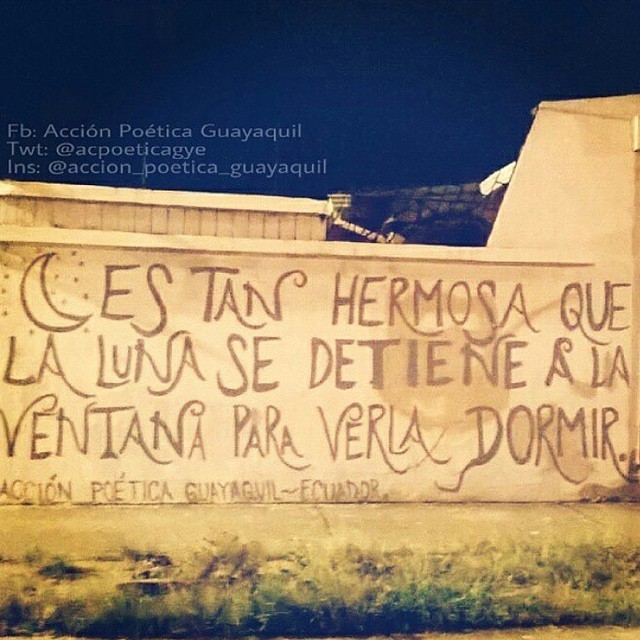 Fb: Acción Poética Guayaquil
Twt: @acpoeticagye
Ins: @accion_poetica_guayaquil
ES TAN HERMOSA QUE
LA LUNA SE DETIENE A LA
VENTANA PARA VERLA DORMIR.
ACCIÓN POÉTICA GUAYAQUIL~ECUADOR.